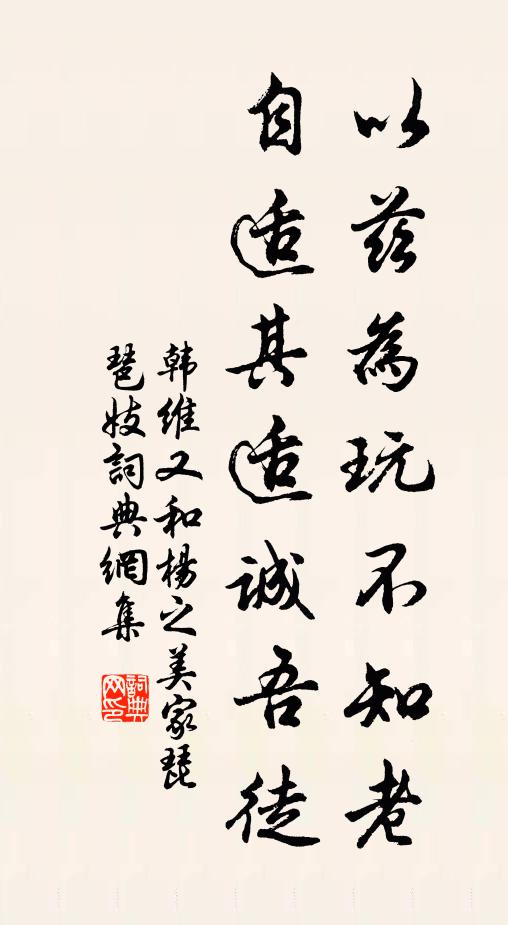 以茲為玩不知老
自适其适誠吾徒
韩維又和楊之美家琵
琶妓詞典網集
詞典
网印